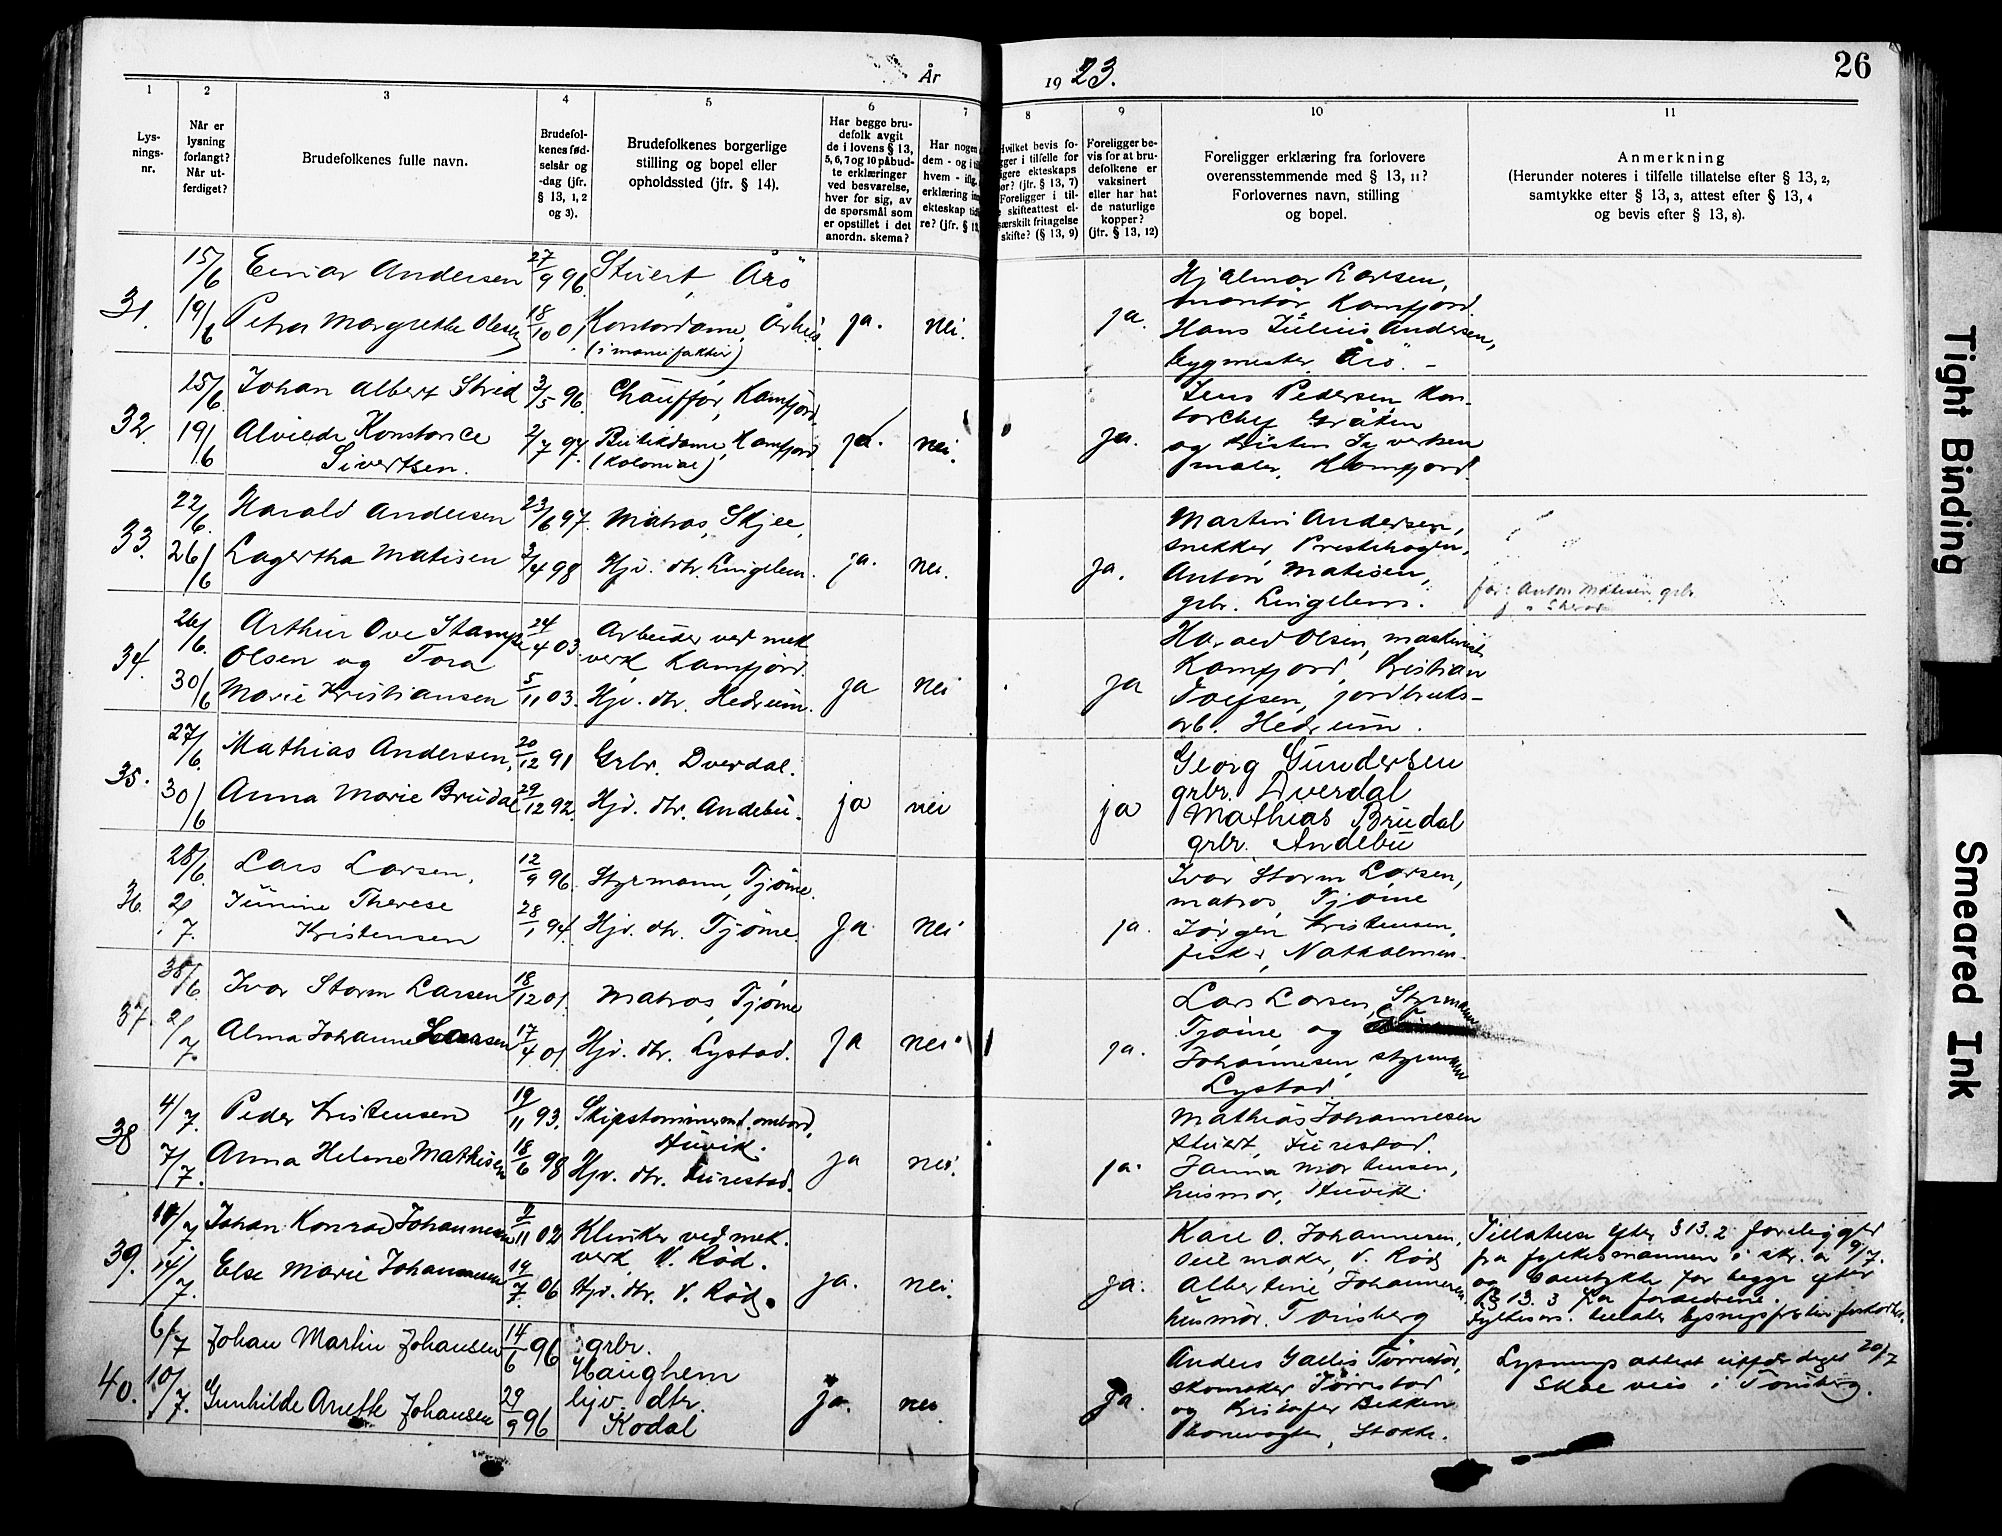 År 1923.
26
1
2
3
4
5
6
7
8
9
10
11
Lys-
nings-
nr.
Når er
lysning
forlangt?
Når ut-
ferdiget?
Brudefolkenes fulle navn.
Brudefol-
kenes fød-
selsår og
-dag (jfr.
§ 13, 1, 2
og 3).
Brudefolkenes borgerlige
stilling og bopel eller
opholdssted (jfr. § 14).
Har begge bru-
defolk avgit
de i lovens § 13,
5, 6, 7 og 10 påbud-
te erklæringer
ved besvarelse,
hver for sig, av
de spørsmål som
er opstillet i det
anordn. skema?
Har nogen
dem - og i
hvem - ifig.
erklæring
ekteskap
re? (jfr. § 13,
Hvilket bevis fo-
gger i tilfelle for
igere ekteskaps
or? (jfr. § 13, 7)
Foreligger i til-
e skifteattest el-
særskilt fritagelse
skifte? (§ 13, 9)
Foreligger be-
vis for at bru-
defolkene er
vaksinert
eller har hat
de naturlige
kopper?
(jfr. § 13, 12)
Foreligger erklæring fra forlovere
overensstemmende med § 13, 11?
Forlovernes navn, stilling
og bopel.
Anmerkning
(Herunder noteres i tilfelle tillatelse efter § 13, 2,
samtykke efter § 13, 3, attest efter § 13, 4
og bevis efter § 13, 8).
31.
15/6 Einar Andersen 27/9 96. Stuert, Årö
19/6 Petra Margrethe Olesen 18/10 01. Kontordame, Århus.
(i manufaktur)
ja. nei. ja.
Hjalmar Larsen,
montör, Kamfjord.
Hans Julius Andersen,
bygmester, Årö. -
32.
15/6. Johan Albert Strid 3/5 96. Chauffør, Kamfjord.
19/6 Alvilde Konstance 2/7 97. Butikdame, Kamfjord
Sivertsen. (Kolonial)
ja. nei. ja.
Jens Pedersen kon-
torchef Gråten
og Kristen Syvertsen
maler, Kamfjord.
33.
22/6. Harald Andersen 23/6 97. Matros, Skjee,
26/6 Lagertha Matisen 3/4 98 Hjv. dtr. Lingelem.
ja. nei. ja.
Martin Andersen,
snekker, Prestehagen,
Anton Matisen,
grbr. Lingelem.
far: Anton Matisen, grbr.
34.
26/6. Arthur Ove Stampe 24/4 03. Arbeider ved mek
Olsen og Tora verk, Kamfjord.
30/6 Marie Kristiansen 5/11 03. Hjv. dtr. Hedrum.
ja nei ja
Harald Olsen, maskinist
Kamfjord, Kristian
Tolfsen, jordbruks-
arb. Hedrum.
35.
27/6. Mathias Andersen, 20/12 91 Grbr. Dverdal.
30/6 Anna Marie Brudal 29/12 92. Hjv. dtr. Andebu.
ja nei ja
Georg Gundersen
grbr. Dverdal
Mathias Brudal
grbr. Andebu
36.
28/6. Lars Larsen, 12/9 96. Styrmann, Tjøme.
2/7. Junine Therese 28/1 94. Hjv. dtr. Tjøme.
Kristensen
ja nei ja.
Ivar Storm Larsen,
matros, Tjøme
Jørgen Kristensen,
fisker, Natholmen.
37.
28/6. Ivar Storm Larsen 18/12 01. Matros, Tjøme
2/7. Alma Johanne Larsen 17/4 01. Hjv. dtr. Lystad.
ja nei. ja.
Lars Larsen, Styrmann
Tjøme, og
Johannesen, styrmann
Lystad.
38
4/7. Peder Kristensen 19/11 93. Skipstømmermd. ombord,
Huvik.
7/7. Anna Helene Mathisen 18/6 98 Hjv. dtr. Furestad.
ja nei. ja.
Mathias Johannesen
stuert, Furestad.
Janna Mortensen,
husmor, Huvik.
39.
10/7 Johan Konrad Johannesen 9/11 02 Klinker ved mek.
verk, V. Rød.
14/7. Else Marie Johannesen 19/7. 06 Hjv. dtr. V. Rød.
ja. nei. ja.
Karl O. Johannesen,
seilmaker, V. Rød
Albertine Johannesen,
husmor. Tønsberg
Tillatelse efter § 13.2 foreligger
fra fylkesmannen i skr. a 9/7.
og samtykke for begge efter
§ 13. 3 fra foreldrene.
40.
6/7 Johan Martin Johansen 14/6 96 grbr.
Haughem
10/7. Gunhilde Anette Johansen 29/9 96 hjv. dtr.
Kodal
ja. nei. ja.
Anders Gallis Tørrestad,
skomaker Tørrestad
og Kristofer Bekken
banevogter, Stokke.
Lysnings attest utferdiget 20/7
Skal vies i Tønsberg.
Tight Binding
Smeared Ink